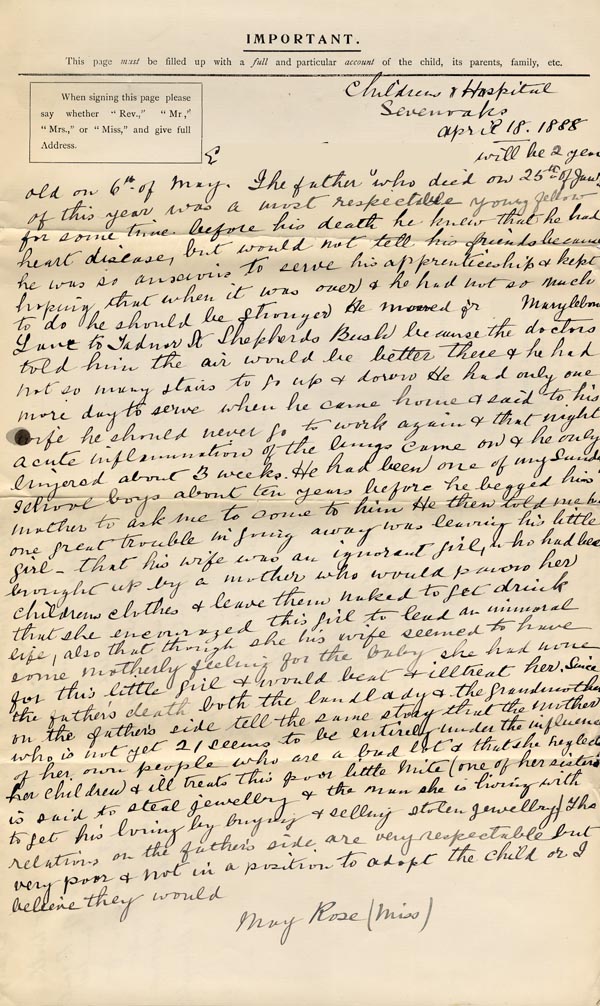 IMPORTANT.
This page must be filled up with a full and particular account of the child, its parents, family, etc.
When signing this page please
say whether "Rev.," "Mr,"
"Mrs.," or "Miss," and give full
Address.
Childrens Hospital
Sevenoaks
April 18. 1888
E will be 2 years
old on 6th of May. The father who died on 25th of Jan
of this year was a most respectable young fellow
for some time before his death he knew that he had
heart disease, but would not tell his friends because
he was so anxious to serve his apprenticeship & kept
hoping that when it was over & he had not so much
to do he should be stronger He moved fr Marylebone
Lane to Tadnor St Shepherds Bush because the doctors
told him the air would be better there & he had
not so many stairs to go up & down He had only one
more day to serve when he came home & said to his
wife he should never go to work again & that night
acute inflammation of the lungs came on & he only
lingered about 3 weeks. He had been one of my Sunday
School boys about ten years before he begged his
mother to ask me to come to him He then told me his
one great trouble in going away was leaving his little
girl - that his wife was an ignorant girl, who had been
brought up by a mother who would pawn her
childrens clothes & leave them naked to get drink
that she encouraged this girl to lead an immoral
life, also that though she his wife seemed to have
some motherly feeling for the baby she had none
for this little girl & would beat & illtreat her. Since
the father's death both the landlady & the grandmother
on the father's side tell the same story that the mother
who is not yet 21 seems to be entirely under the influence
of her own people who are a bad lot & that she neglects
her children & ill treats this poor little mite (one of her sisters
is said to steal jewellery & the man she is living with
to get his living by buying & selling stolen jewellery) The
relations on the father's side are very respectable but
very poor & not in a position to adopt the child or I
believe they would
May Rose (Miss)